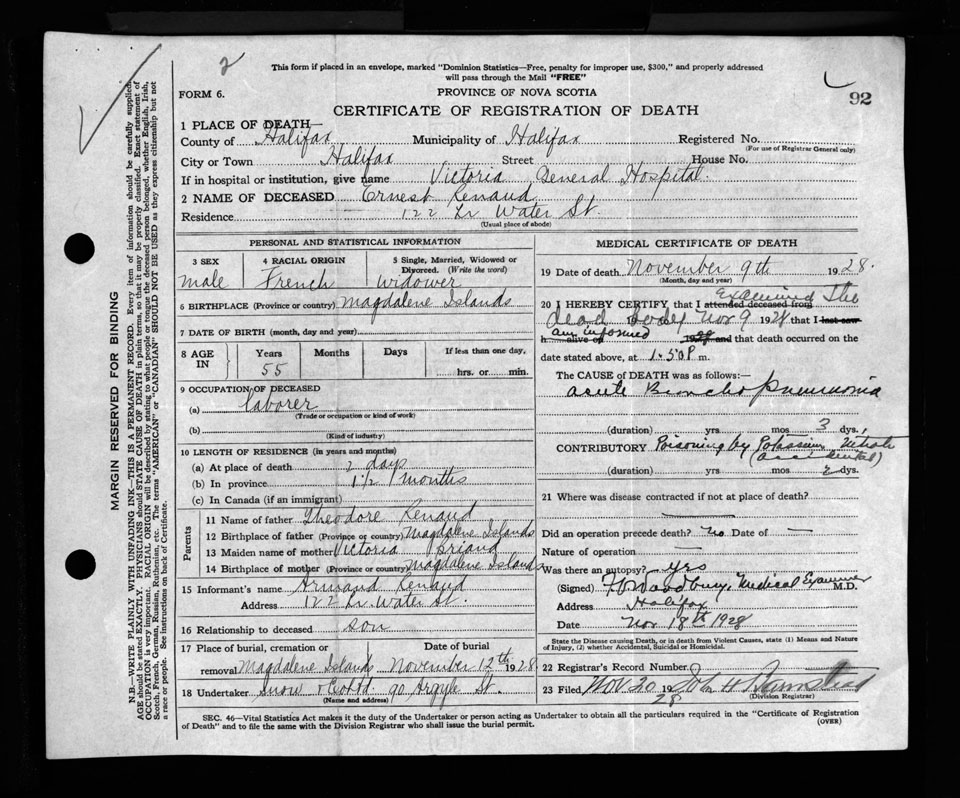 2
This form if placed in an envelope, marked "Dominion Statistics—Free, penalty for improper use, $300," and properly addressed
will pass through the Mail "FREE"
92
FORM 6.
PROVINCE OF NOVA SCOTIA
CERTIFICATE OF REGISTRATION OF DEATH
1 PLACE OF DEATH
County of Halifax Municipality of Halifax Registered No.
(For use of Registrar General only)
City or Town Halifax Street House No.
If in hospital or institution, give name Victoria General Hospital.
2 NAME OF DECEASED Ernest Renaud
Residence 122 Lr Water St.
(Usual place of abode)
PERSONAL AND STATISTICAL INFORMATION
3 SEX 4 RACIAL ORIGIN 5 Single, Married, Widowed or
Divorced. (Write the word)
male French widower
6 BIRTHPLACE (Province or country) Magdalene Islands
7 DATE OF BIRTH (month, day and year)
8 AGE IN Years Months Days If less than one day,
55 hrs. or min.
9 OCCUPATION OF DECEASED
(a) laborer
(Trade or occupation or kind of work)
(b)
(Kind of industry)
10 LENGTH OF RESIDENCE (in years and months)
(a) At place of death 2 days
(b) In province 1 1/2 months
(c) In Canada (if an immigrant)
Parents
11 Name of father Theodore Renaud
12 Birthplace of father (Province or country) Magdalene Islands
13 Maiden name of mother Victoria Briand
14 Birthplace of mother (Province or country) Magdalene Islands
15 Informant's name Armand Renaud
Address 122 Lr. Water St.
16 Relationship to deceased son
17 Place of burial, cremation or Date of burial
removal Magdalene Islands November 12th 1928
18 Undertaker Snow & Co Ltd 90 Argyle St.
(Name and address)
MEDICAL CERTIFICATE OF DEATH
19 Date of death November 9th 1928.
(Month, day and year)
20 I HEREBY CERTIFY that I attended deceased from examined the
dead body Nov 9 1928 that I last saw
h alive on am informed 1928 and that death occurred on the
date stated above, at 1.50 P m.
The CAUSE of DEATH was as follows:—
acute Broncho pneumonia
(duration) yrs mos 3 dys.
CONTRIBUTORY Poisoning by Potassium Nitrate
(accidental)
(duration) yrs. mos 2 dys.
21 Where was disease contracted if not at place of death?
Did an operation precede death? no Date of —
Nature of operation —
Was there an autopsy? yes
(Signed) Woodbury, Medical Examiner M.D.
Address Halifax
Date Nov 18th 1928
State the Disease causing Death, or in death from Violent Causes, state (1) Means and Nature
of Injury, (2) whether Accidental, Suicidal or Homicidal.
22 Registrar's Record Number.
23 Filed Nov 20 1928 John H
(Division Registrar)
SEC. 46—Vital Statistics Act makes it the duty of the Undertaker or person acting as Undertaker to obtain all the particulars required in the "Certificate of Registration
of Death" and to file the same with the Division Registrar who shall issue the burial permit.
(OVER)
MARGIN RESERVED FOR BINDING
N.B.—WRITE PLAINLY WITH UNFADING INK—THIS IS A PERMANENT RECORD. Every item of information should be carefully supplied.
AGE should be stated EXACTLY. PHYSICIANS should STATE CAUSE OF DEATH in plain terms, so that it may be properly classified. Exact statement of
OCCUPATION is very important. RACIAL ORIGIN will be described by stating to what people or tongue the deceased person belonged, whether English, Irish,
Scotch, French, German, Russian, Ruthenian, etc. The terms "AMERICAN" or "CANADIAN" SHOULD NOT BE USED as they express citizenship but not
a race or people. See instructions on back of Certificate.